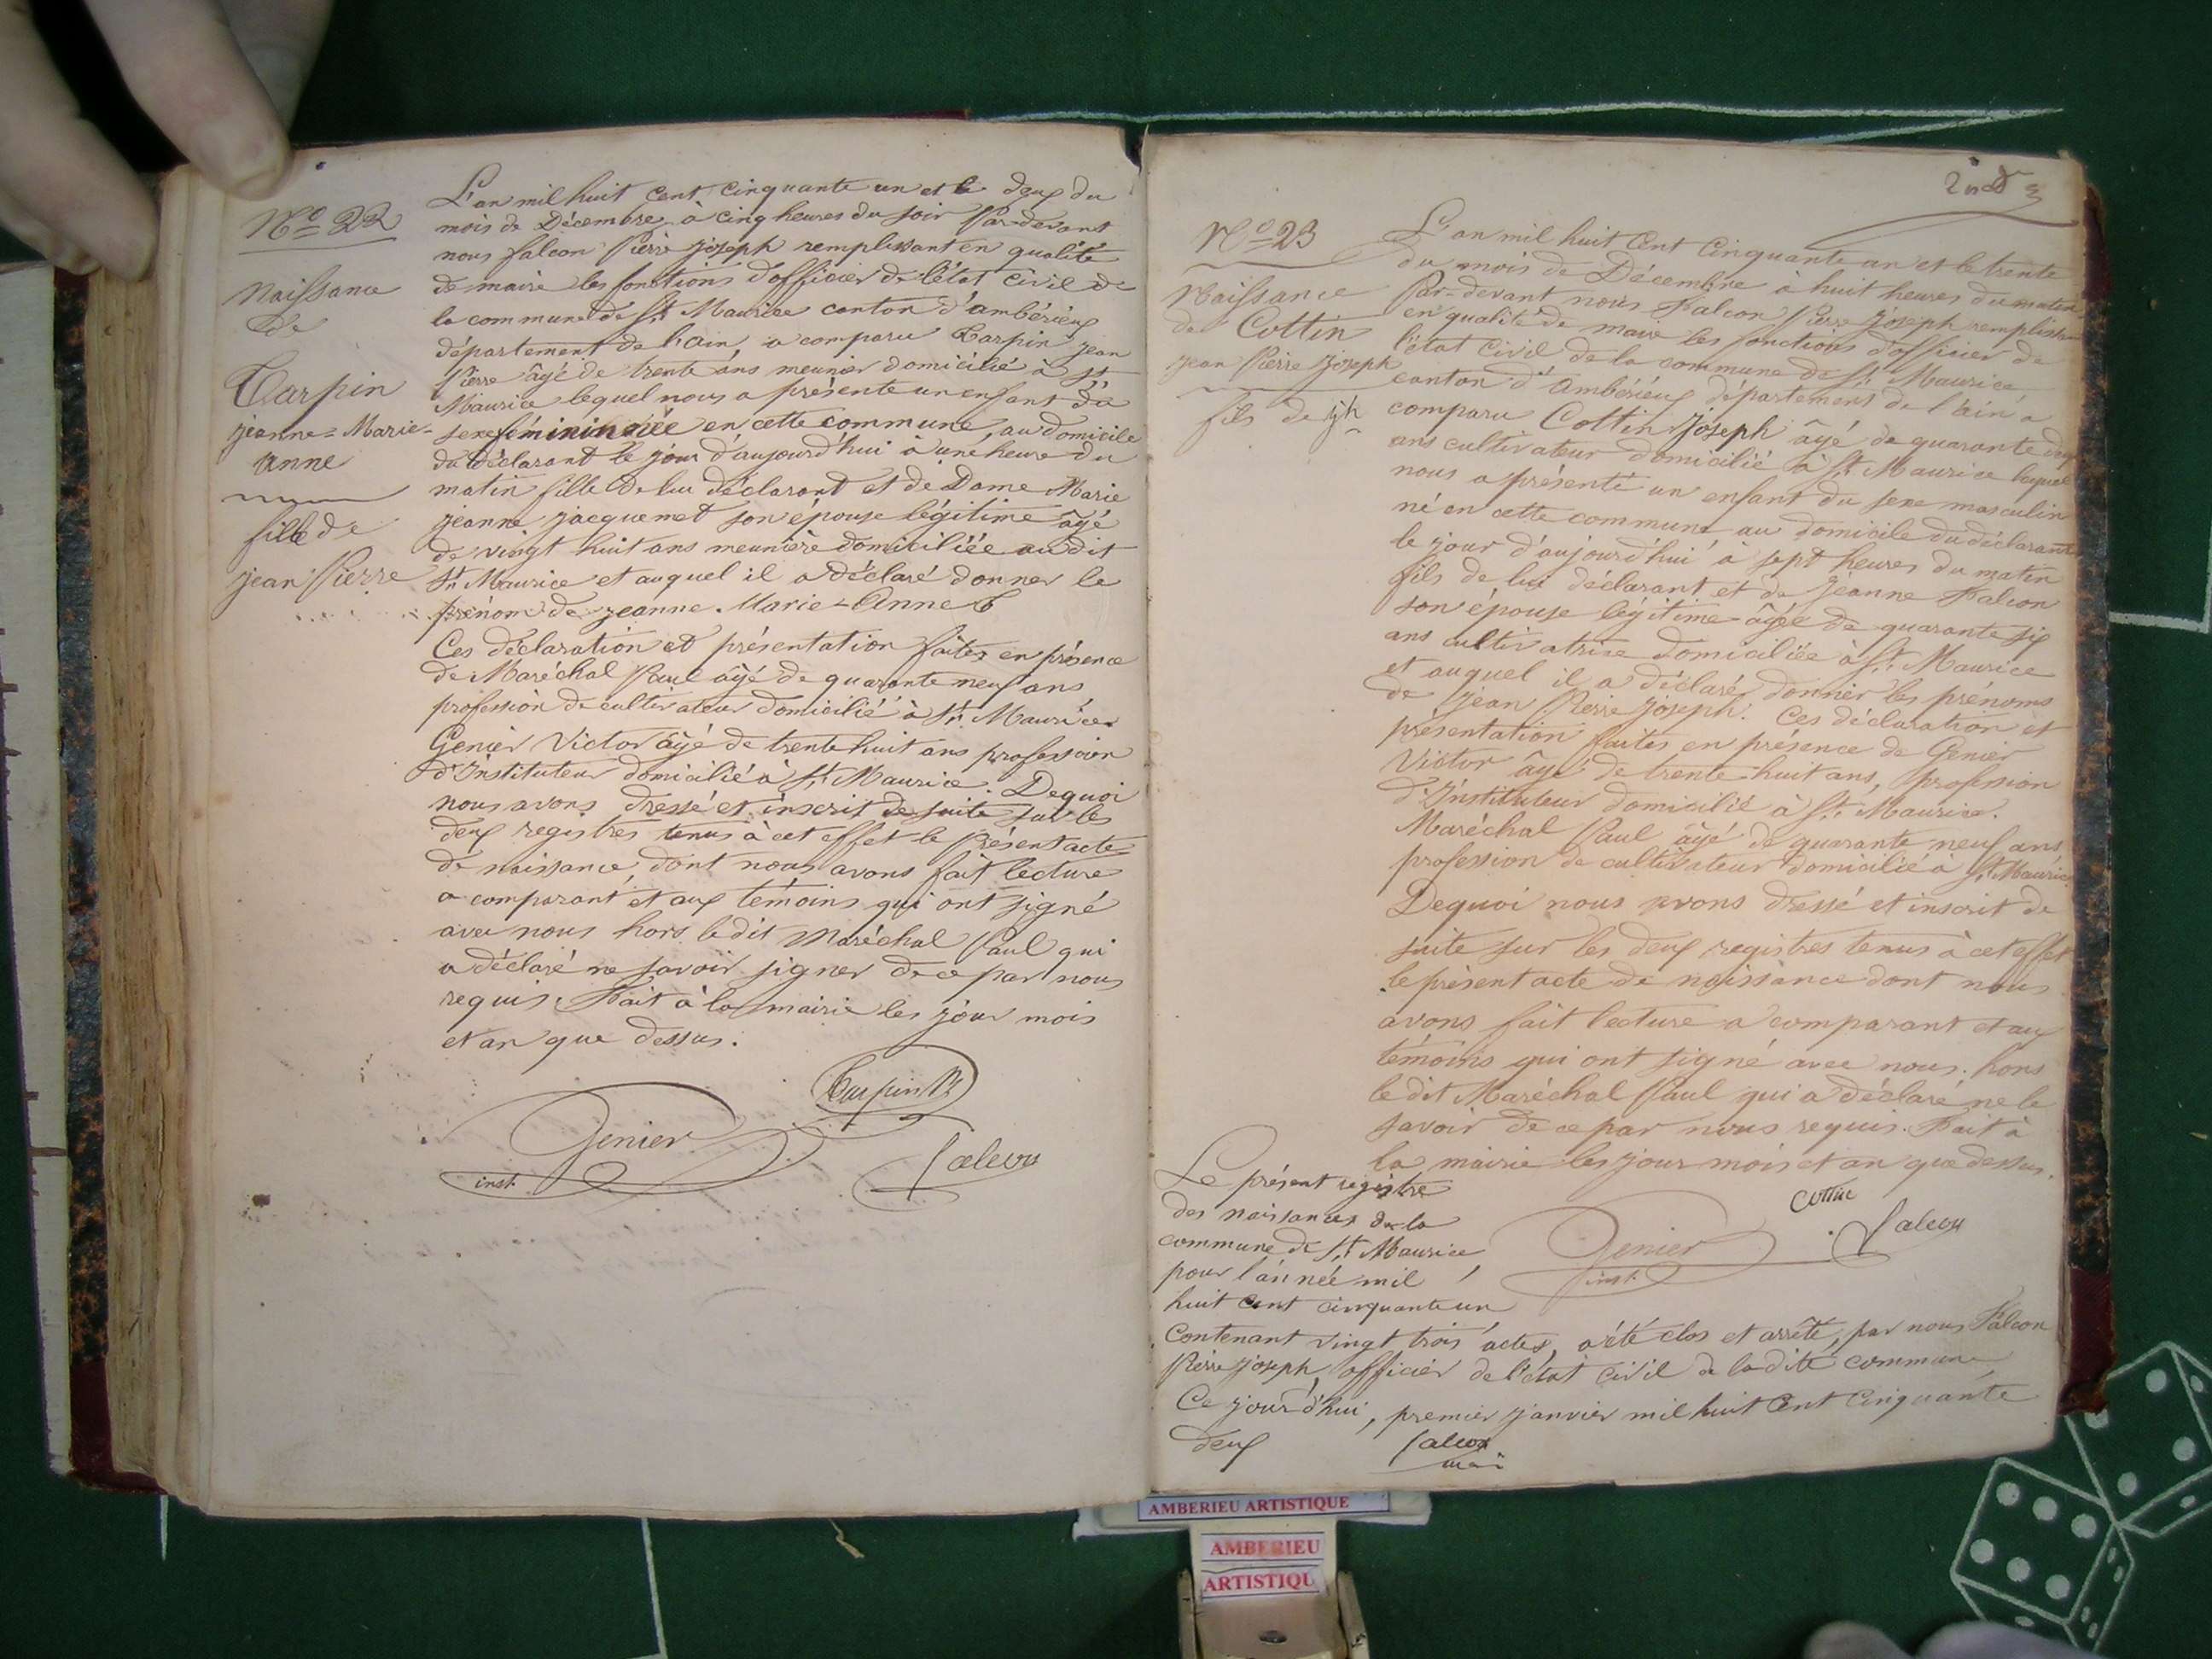 N.o 22
Naissance
de
Carpin
jeanne=Marie-
Anne
fille de
jean Pierre
L'an mil huit Cent Cinquante un et le deux du
mois de Décembre à Cinq heures du soir Par-devant
nous falcon Pierre joseph remplissant en qualité
de maire les fonctions d'officier de l'état Civil de
la commune de St. Maurice canton d'ambérieux
département de l'ain, a comparu Carpin jean
Pierre âgé de trente ans meunier domicilié à St
Maurice lequel nous a présenté un enfant du
sexe féminin née en cette commune, au domicile
du déclarant le jour d'aujourd'hui à une heure du
matin fille de lui déclarant et de Dame Marie
jeanne jacquemet son épouse légitime âgé
de vingt huit ans meunière domiciliée au dit
St. Maurice et auquel il a déclaré donner le
prénom de jeanne Marie-Anne
Ces déclaration et présentation faites en présence
de Maréchal Paul âgé de quarante neuf ans
profession de cultivateur domicilié à St. Maurice
Genier Victor âgé de trente huit ans profession
d'Instituteur domicilié à St. Maurice. Dequoi
nous avons dressé et inscrit de suite sur les
deux registres tenus à cet effet le Présent acte
de naissance, dont nous avons fait lecture
a comparant et aux témoins qui ont signé
avec nous hors le dit Maréchal Paul qui
a déclaré ne savoir signer de ce par nous
requis. Fait à la mairie les jour mois
et an que dessus.
Carpin
Genier
inst.
falcon
N.o 23
Naissance
de Cottin
jean Pierre Joseph
fils de jh
L'an mil huit Cent Cinquante un et le trente
du mois de Décembre à huit heures du matin
Par-devant nous Falcon Pierre Joseph remplissant
en qualité de maire les fonctions d'officier de
l'état Civil de la commune de St. Maurice
canton d'Ambérieux département de l'ain a
comparu Cottin Joseph âgé de quarante deux
ans cultivateur domicilié à St. Maurice lequel
nous a présenté un enfant du sexe masculin
né en cette commune au domicile du déclarant
le jour d'aujourd'hui à sept heures du matin
fils de lui déclarant et de Jeanne Falcon
son épouse légitime âgée de quarante six
ans cultivatrice domiciliée à St. Maurice
et auquel il a déclaré donner les prénoms
de Jean Pierre Joseph. Ces déclaration et
présentation faites en présence de Genier
Victor âgé de trente huit ans, profession
d'Instituteur domicilié à St. Maurice.
Maréchal Paul âgé de quarante neuf ans
profession de cultivateur domicilié à St. Maurice
Dequoi nous avons dressé et inscrit de
suite sur les deux registres tenus à cet effet
le présent acte de naissance dont nous
avons fait lecture a comparant et aux
témoins qui ont signé avec nous. hors
le dit Maréchal Paul qui a déclaré ne le
savoir de ce par nous requis. Fait à
la mairie les jour mois et an que dessus.
Cottin
Genier
inst.
falcon
Le présent registre
des naissances de la
commune de St. Maurice,
pour l'année mil
huit cent cinquante un
Contenant vingt trois actes, a été clos et arrêté, par nous Falcon
Pierre joseph officier de l'état Civil de la dite commune
Ce jourd'hui, premier janvier mil huit Cent Cinquante
deux
falcon
AMBERIEU ARTISTIQUE
AMBERIEU
ARTISTIQU